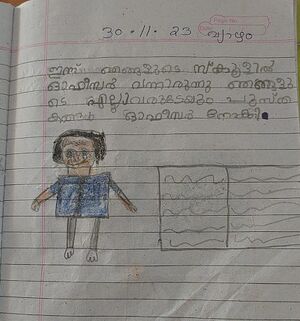 30.11.23 വ്യാഴം
ഇന്ന് ഞങ്ങളുടെ സ്കൂളിൽ
ഓഫീസർ വന്നിരുന്നു ഞങ്ങളു
ടെ എല്ലാവരുടെയും പുസ്ത
കങ്ങൾ ഓഫീസർ നോക്കി.